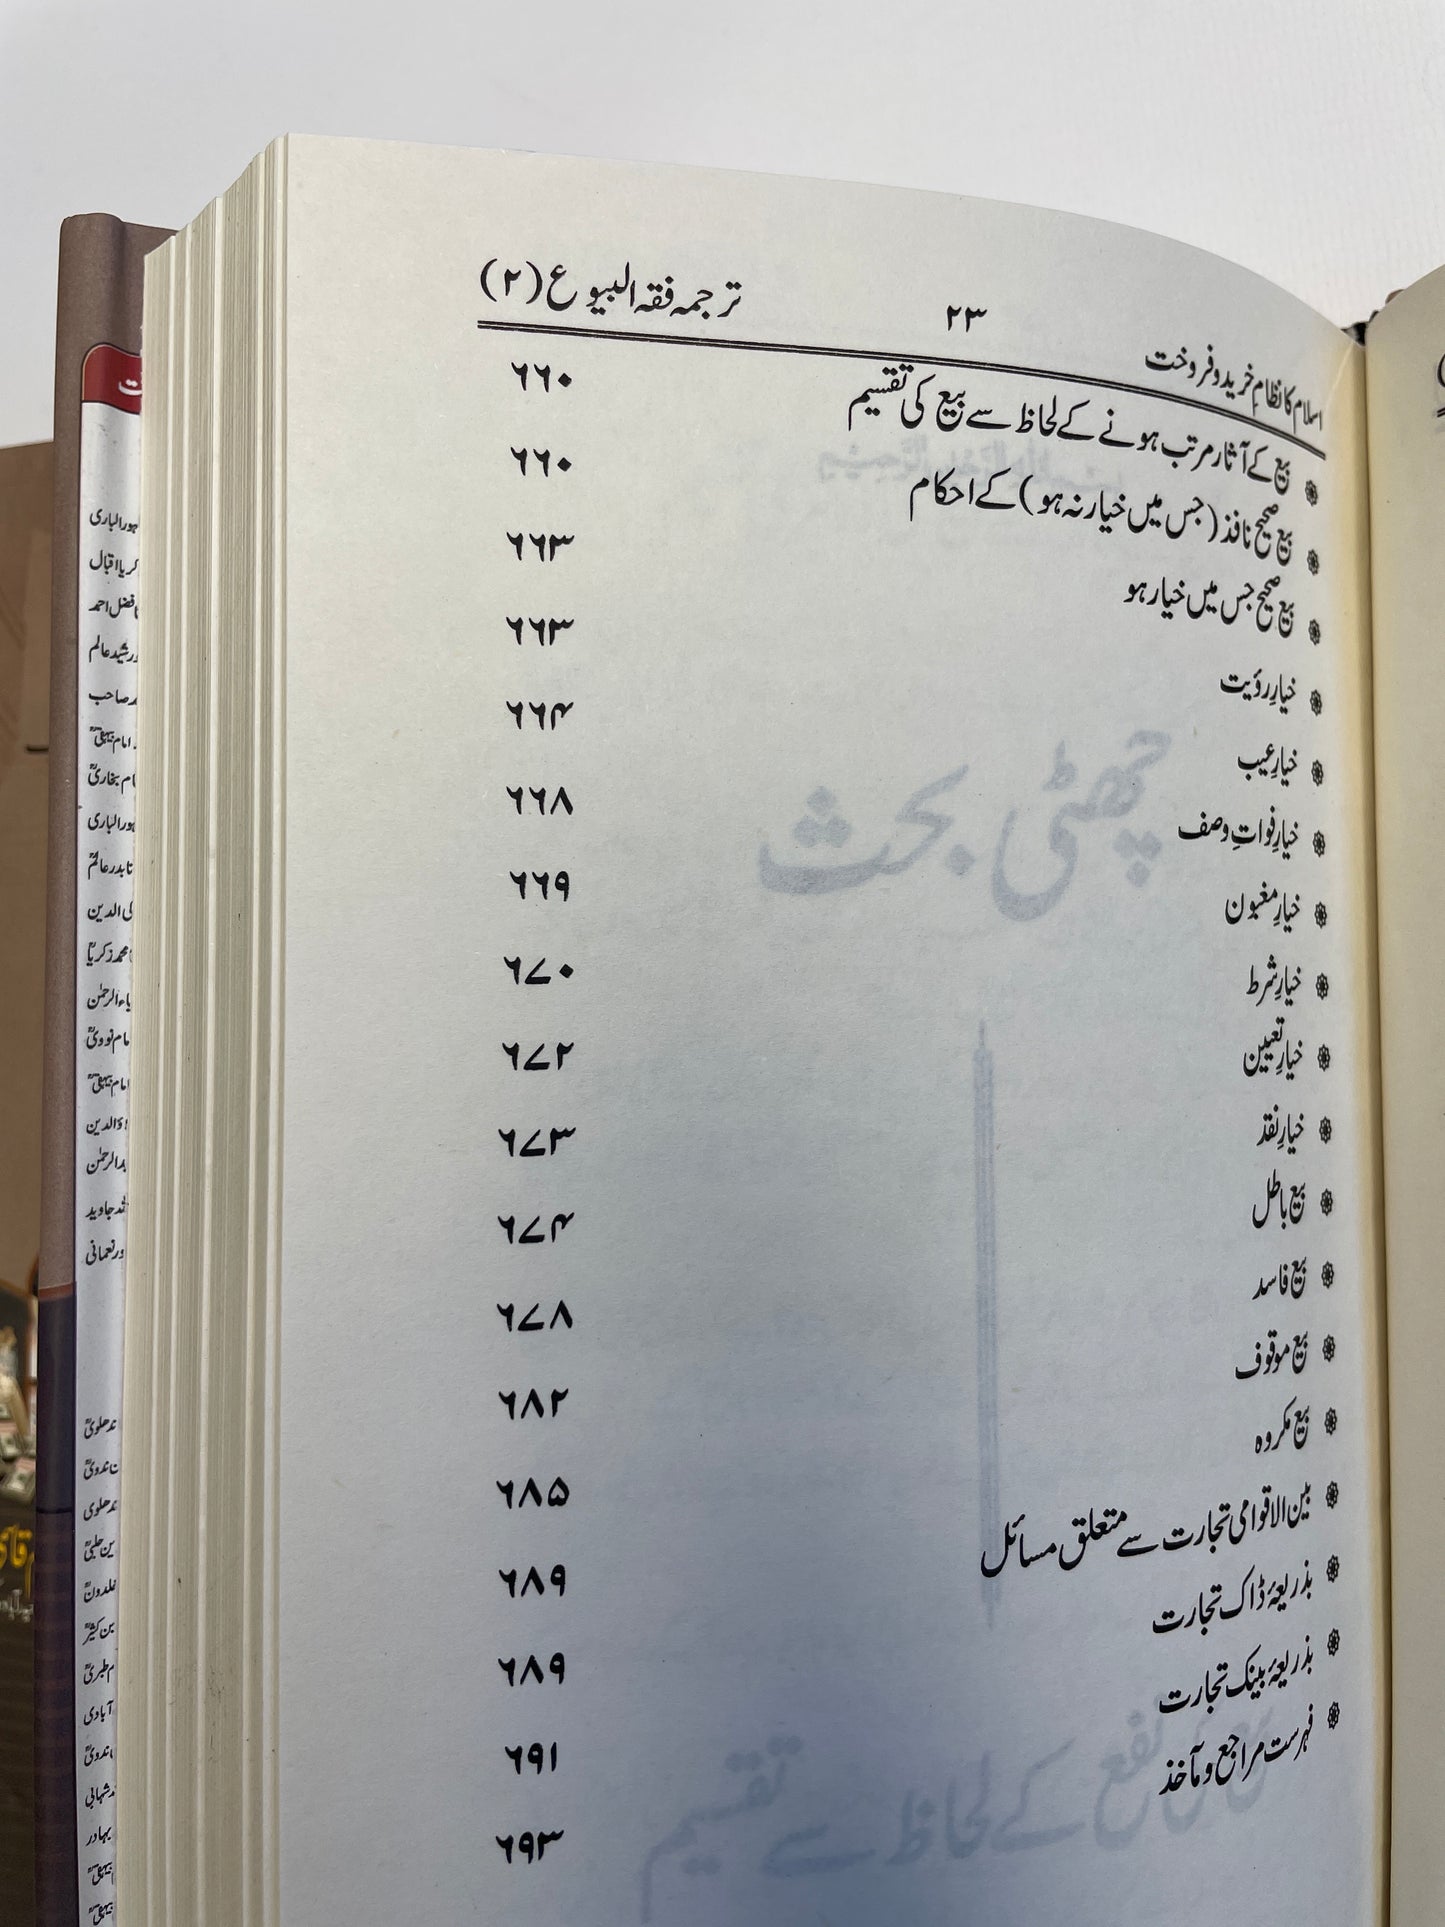 اسلام کا نظامِ خرید و فروخت ۲۳ ترجمہ فقہ البیوع (۲)
بیع کے آثار مرتب ہونے کے لحاظ سے بیع کی تقسیم ۶۶۰
بیع صحیح نافذ (جس میں خیار نہ ہو) کے احکام ۶۶۰
بیع صحیح جس میں خیار ہو ۶۶۳
خیارِ رؤیت ۶۶۳
خیارِ عیب ۶۶۴
خیارِ فواتِ وصف ۶۶۸
خیارِ مغبون ۶۶۹
خیارِ شرط ۶۷۰
خیارِ تعیین ۶۷۲
خیارِ نقد ۶۷۳
بیع باطل ۶۷۴
بیع فاسد ۶۷۸
بیع موقوف ۶۸۲
بیع مکروہ ۶۸۵
بین الاقوامی تجارت سے متعلق مسائل ۶۸۹
بذریعۂ ڈاک تجارت ۶۸۹
بذریعۂ بینک تجارت ۶۹۱
فہرست مراجع و مآخذ ۶۹۳
چھٹی بحث